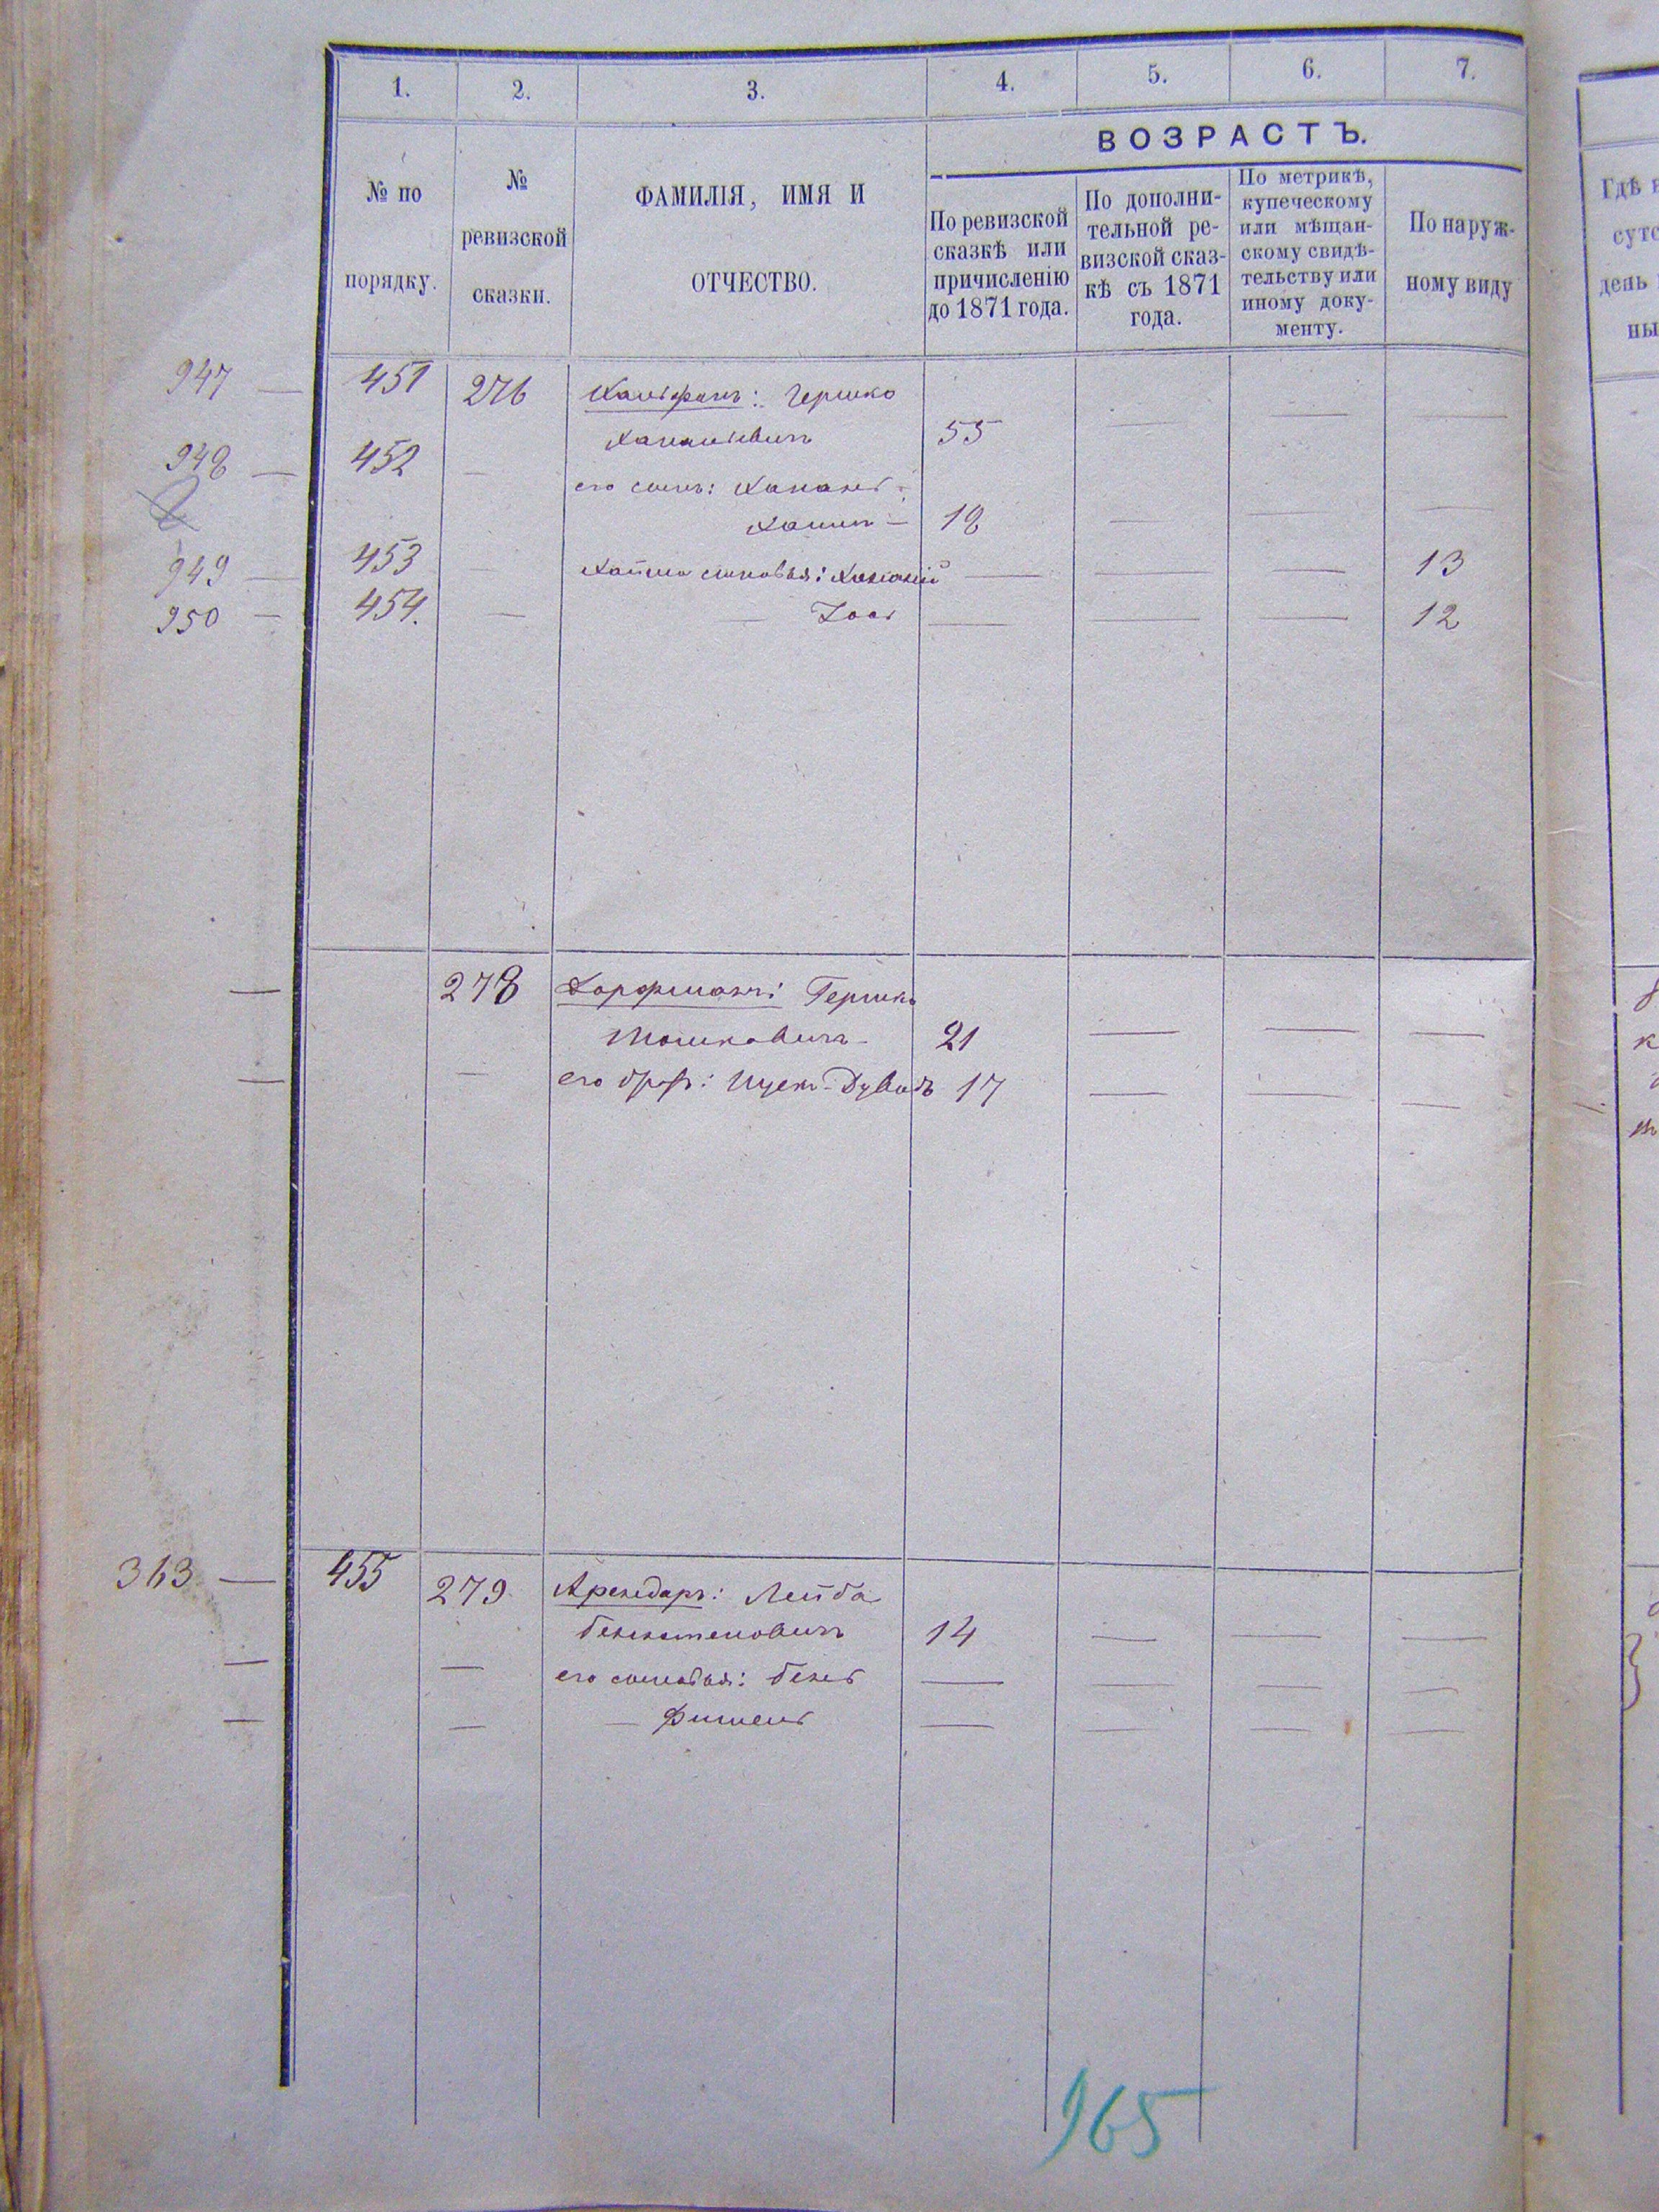 1. 2. 3. 4. 5. 6. 7.
ВОЗРАСТЪ.
№ по
порядку.
№
ревизской
сказки.
ФАМИЛІЯ, ИМЯ И
ОТЧЕСТВО.
По ревизской
сказкѣ или
причисленію
до 1871 года.
По дополни-
тельной ре-
визской сказ-
кѣ съ 1871
года.
По метрикѣ,
купеческому
или мѣщан-
скому свидѣ-
тельству или
иному доку-
менту.
По наруж-
ному виду
947 — 451 276 Гершко
55 — — —
948 — 452 —
его сынъ:
18 — — —
949 — 453 — сыновья: — — — 13
950 — 454. — — — — — 12
— 278 Дорфманъ: Гершко
Мошковичъ 21 — — —
— — его братъ: Ицек-Дувидъ 17 — — —
363 — 455 279 Арендаръ: Лейба
14 — — —
— — его сыновья: Бень — — — —
— — — Фишель — — — —
965
Гдѣ
день